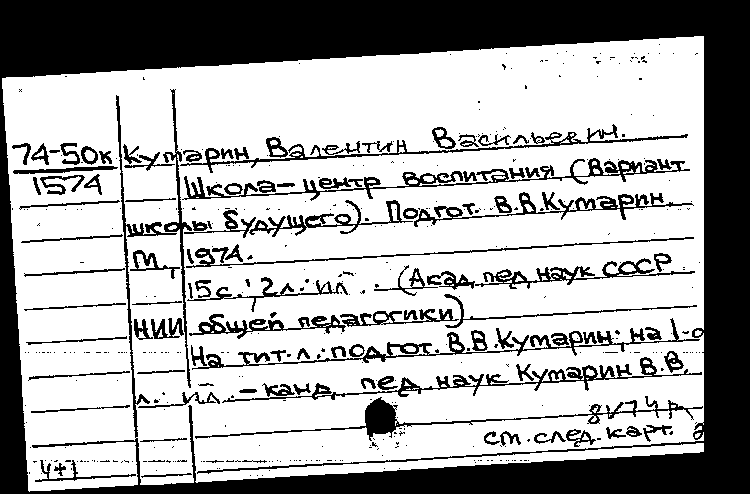 74-50к Кутарин, Валентин Васильевич.
1574 Школа-центр воспитания (Вариант
школы будущего). Подгот. В.В.Кутарин.
М., 1974.
15с.; 2л.: ил. (Акад. пед. наук СССР
НИИ общей педагогики).
На тит. л.: подгот. В.В.Кутарин; на 1-о
л.: ил. - канд. пед. наук Кутарин В.В.
см. след. карт.
4+1